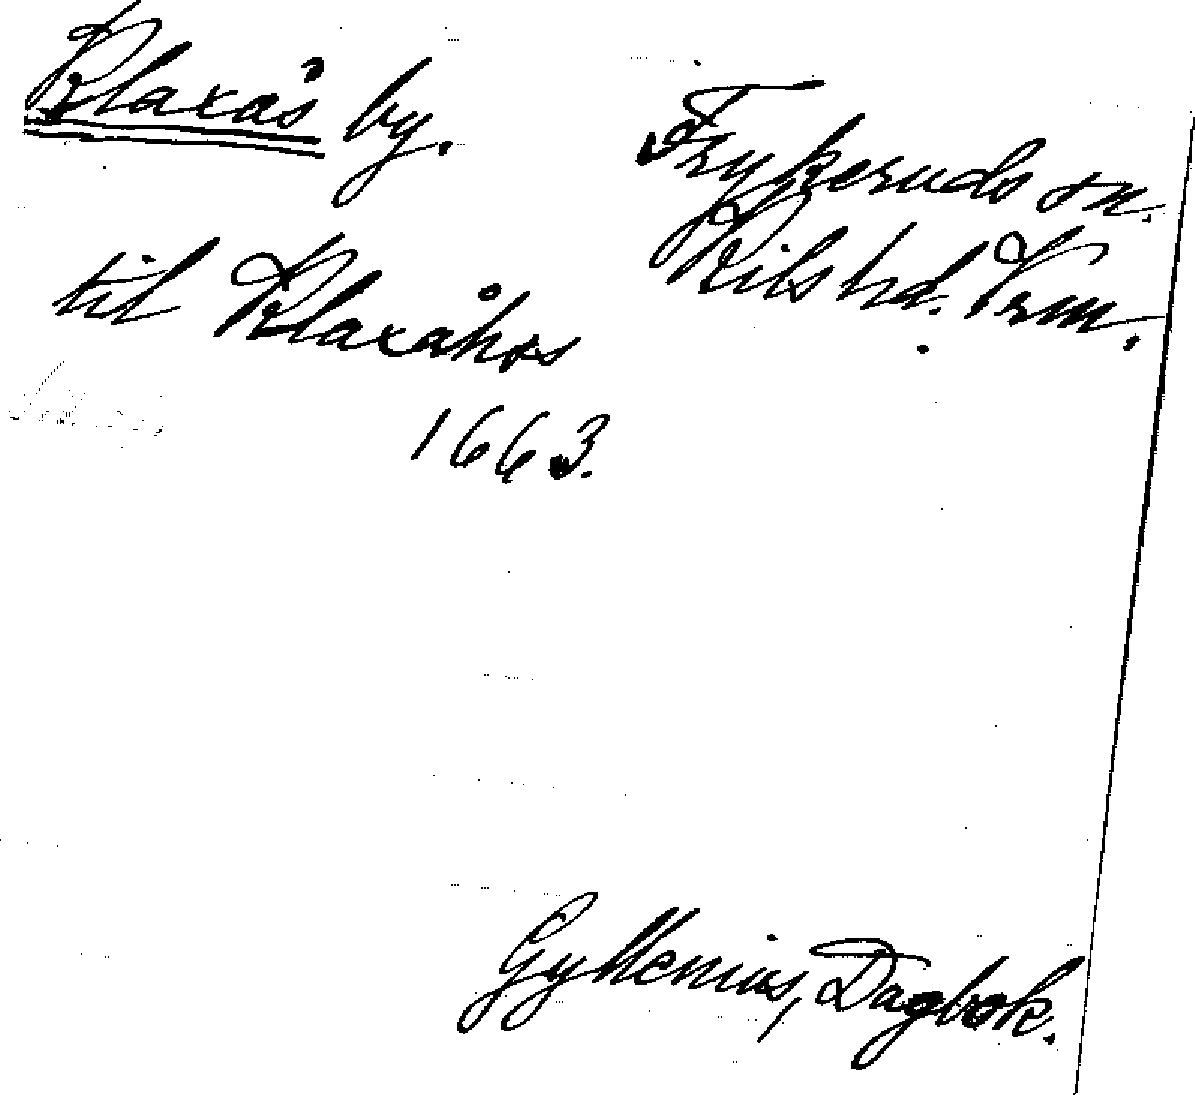 Klaxås by.
Frykeruds sn.
Kils hd. Vrm.
til Klaxåhos
1663.
Gyllenius, Dagbok.